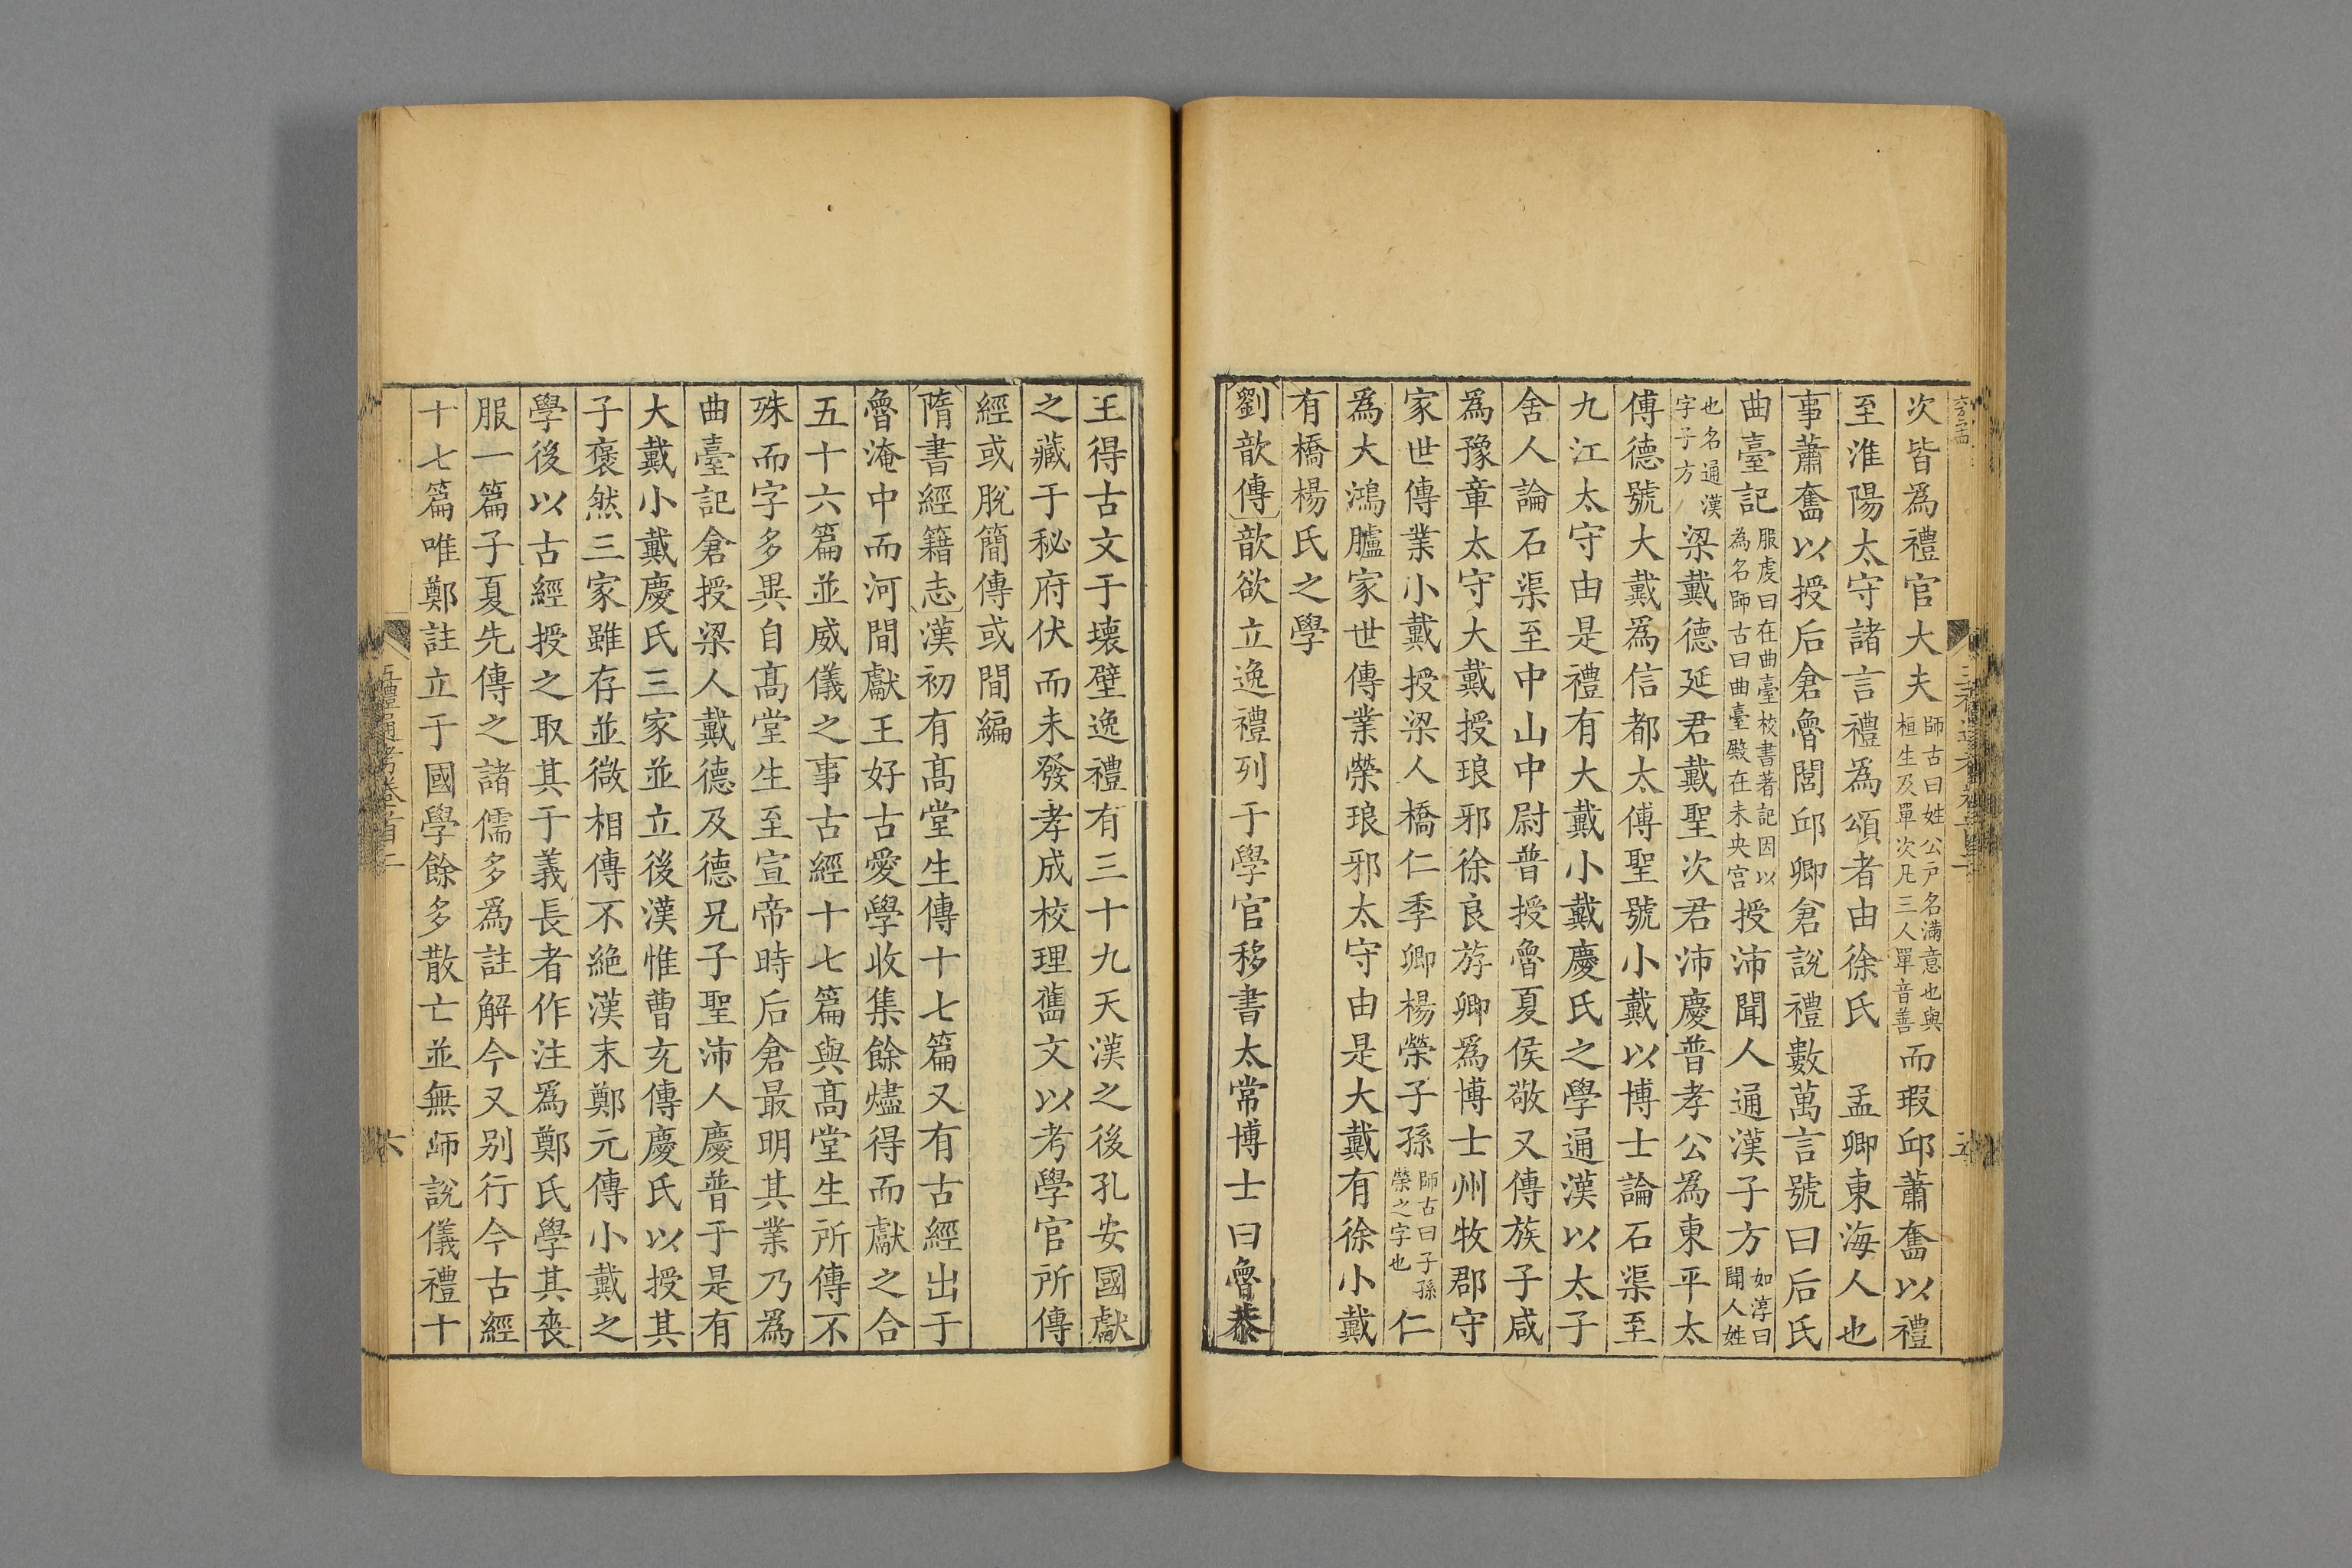 次皆爲禮官大夫師古曰姓公户名滿意也與桓生及單次凡三人單音善而瑕邱蕭奮以禮
至淮陽太守諸言禮爲頌者由徐氏　孟卿東海人也
事蕭奮以授后倉魯閭邱卿倉說禮數萬言號曰后氏
曲臺記服虔曰在曲臺校書著記因以為名師古曰曲臺殿在未央宫授沛聞人通漢子方如淳曰聞人姓
也名通漢字子方梁戴德延君戴聖次君沛慶普孝公爲東平太
傅德號大戴爲信都太傅聖號小戴以博士論石渠至
九江太守由是禮有大戴小戴慶氏之學通漢以太子
舍人論石渠至中山中尉普授魯夏侯敬又傳族子咸
爲豫章太守大戴授琅邪徐良斿卿爲博士州牧郡守
家世傳業小戴授梁人橋仁季卿楊榮子孫師古曰子孫榮之字也仁
爲大鴻臚家世傳業榮琅邪太守由是大戴有徐小戴
有橋楊氏之學
劉歆傳歆欲立逸禮列于學官移書太常博士曰魯恭
王得古文于壞壁逸禮有三十九天漢之後孔安國獻
之藏于秘府伏而未發孝成校理舊文以考學官所傳
經或脫簡傳或間編
隋書經籍志漢初有髙堂生傳十七篇又有古經出于
魯淹中而河間獻王好古愛學收集餘燼得而獻之合
五十六篇並威儀之事古經十七篇與髙堂生所傳不
殊而字多異自髙堂生至宣帝時后倉最明其業乃爲
曲臺記倉授梁人戴德及德兄子聖沛人慶普于是有
大戴小戴慶氏三家並立後漢惟曹充傳慶氏以授其
子褒然三家雖存並微相傳不絶漢末鄭元傳小戴之
學後以古經授之取其于義長者作注爲鄭氏學其喪
服一篇子夏先傳之諸儒多爲註解今又别行今古經
十七篇唯鄭註立于國學餘多散亡並無師說儀禮十
五禮通考卷首二
六